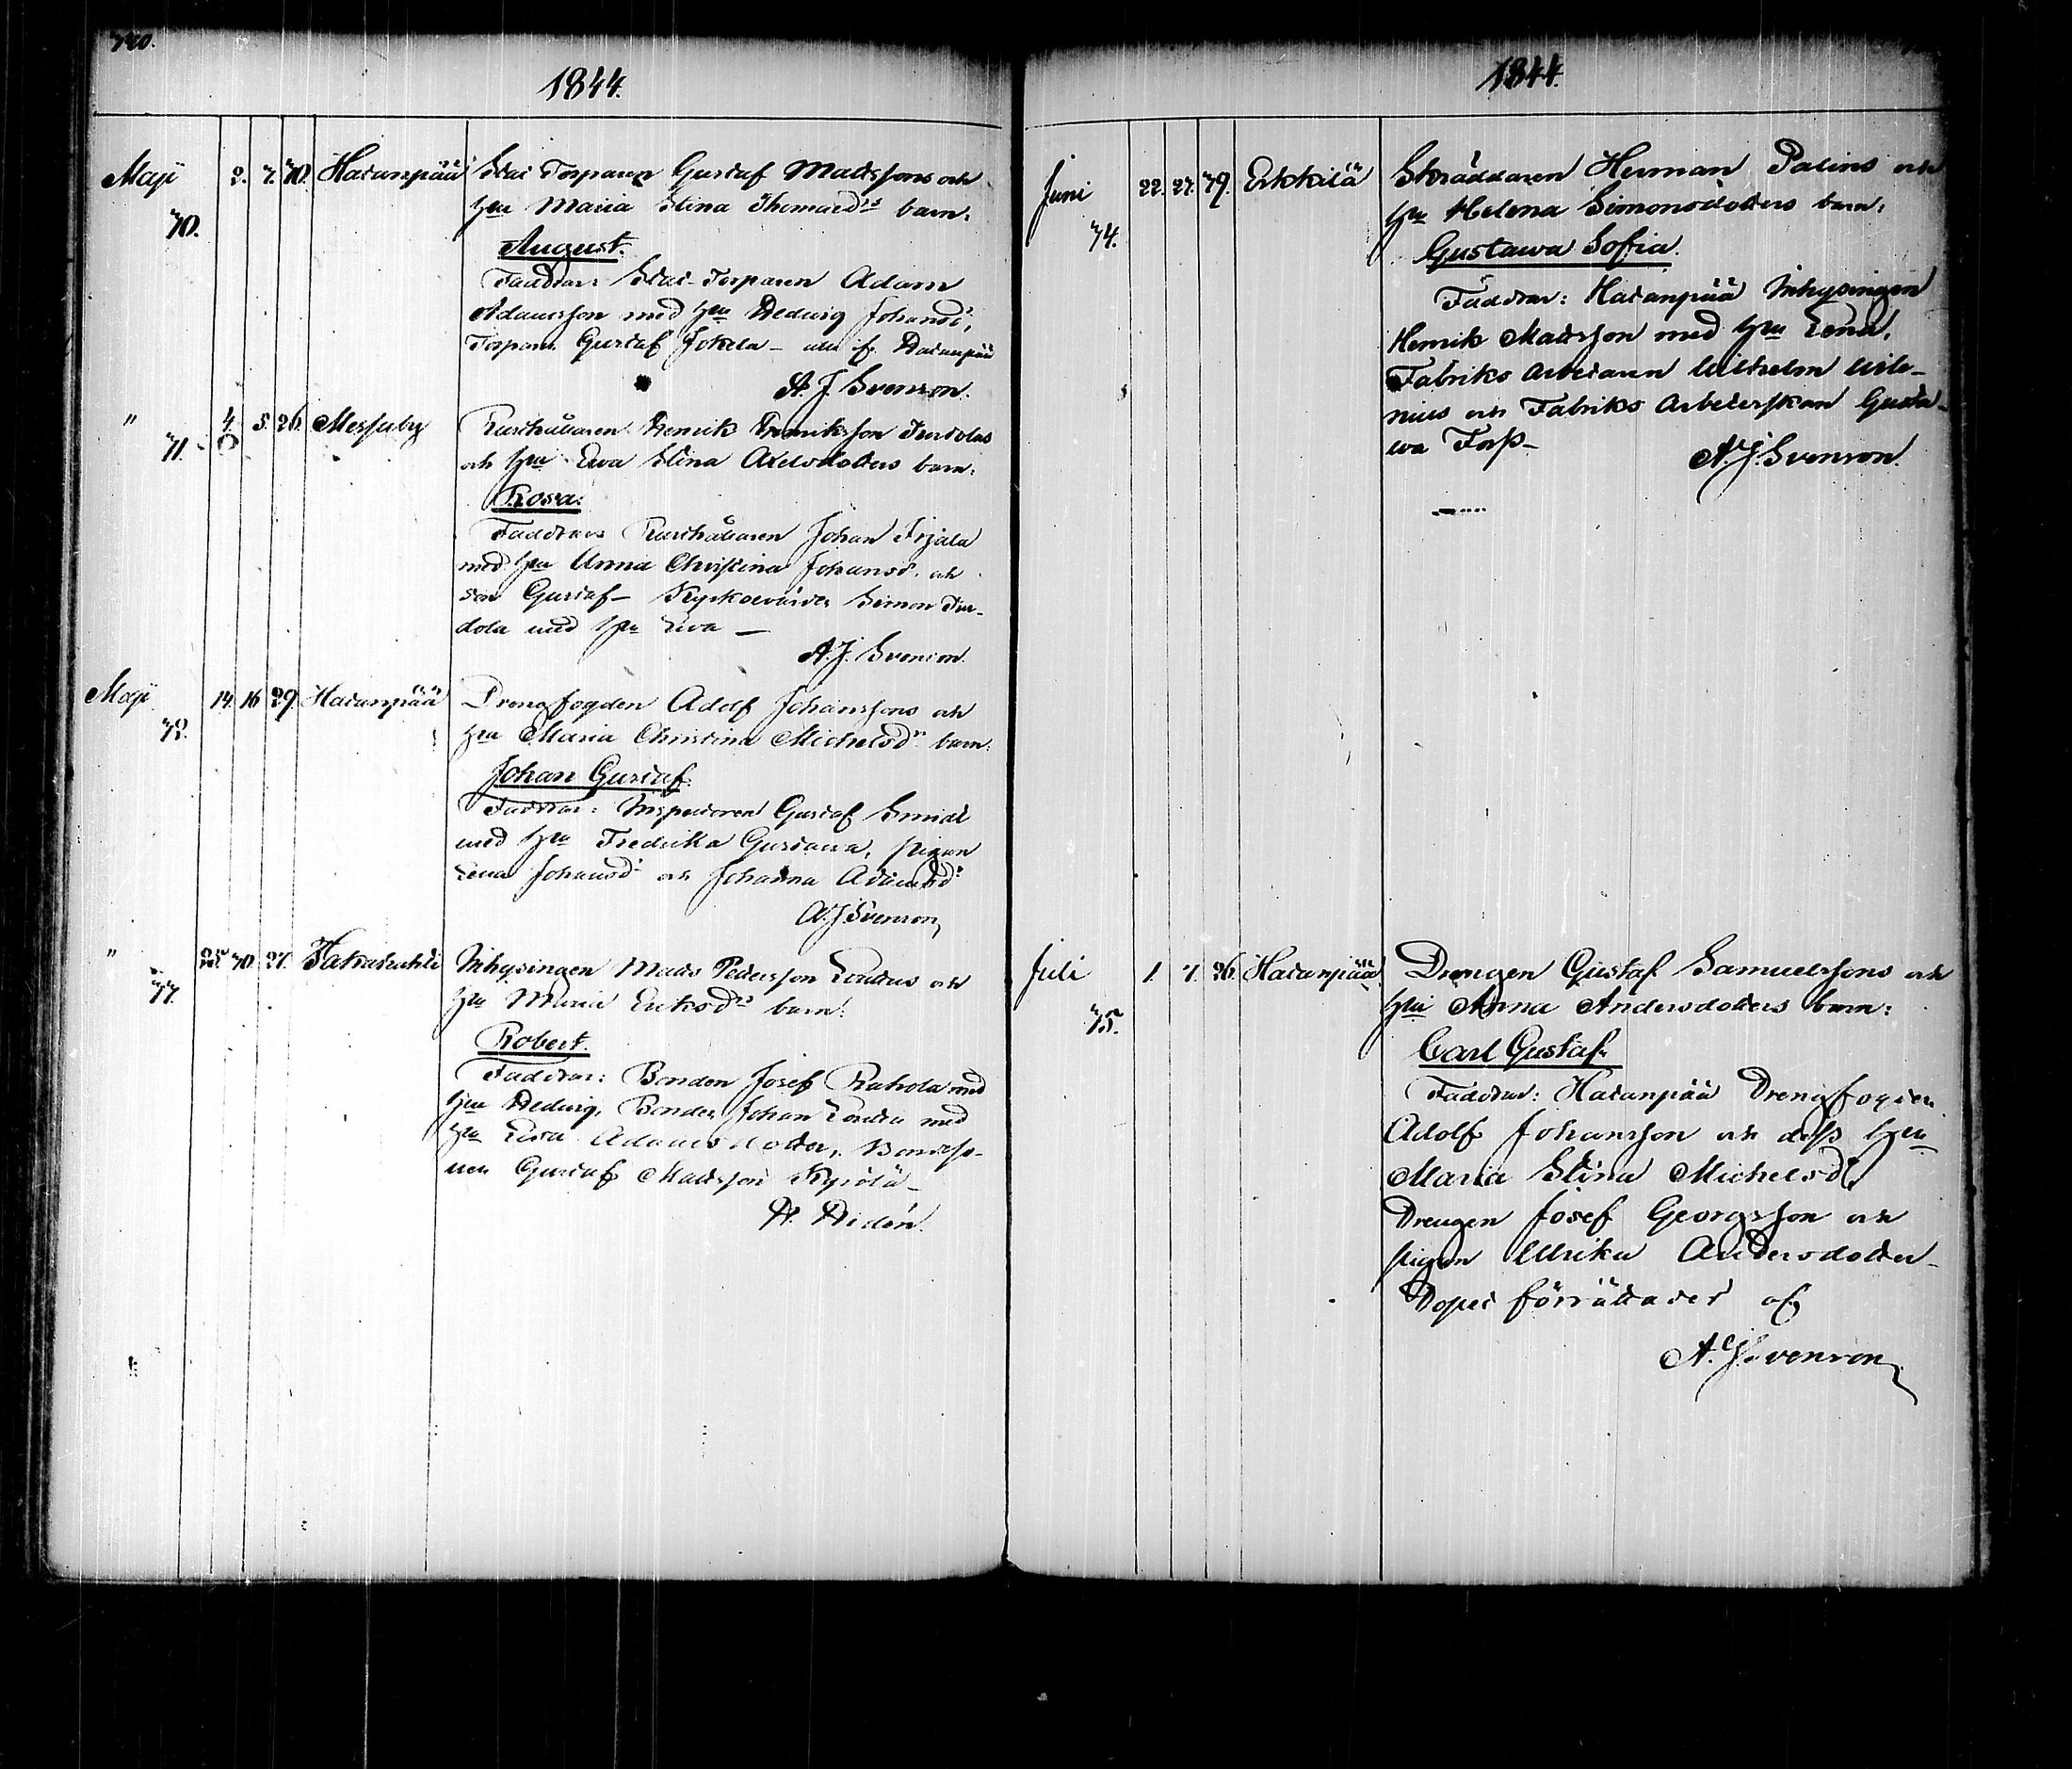 1844.
Maji 2. 7. 30. Hatanpää Stat Torparen Gustaf Mattssons och
70. h̄u Maria Stina Thomasdrs barn:
August.
Faddrar: Stat-Torparen Adam
Adamsson med h̄u Hedvig Johansdr,
Torparn Gustaf Jokela – alla fr. Hatanpää
A. J. Svenson.
" 4. 5. 26. Messuby Rusthållaren Henrik Henriksson
71. och h̄u Eva Stina Axelsdotters barn:
Rosa:
Faddrar Rusthållaren Johan
med h̄u Anna Christina Johansd. och
son Gustaf – Kyrkovärden Simon
dola med h̄u Eva –
A. J. Svenson.
Maji 14. 16. 29. Hatanpää Drengfogden Adolf Johanssons och
72. h̄u Maria Christina Michelsdrs barn:
Johan Gustaf.
Faddrar: Inspectoren Gustaf Smidt
med h̄u Fredrika Gustava, pigan
Lena Johansdr och Johanna Adamsdr
A. J. Svenson
" 25. 30. 27. Takahuhti Inhysingen Matts Pettersson och
73. h̄u Maria Eriksdrs barn:
Robert.
Faddrar: Bonden Josef Rahola med
h̄u Hedvig, Bonden Johan med
h̄u Eva Adamsdotter, Bondeso-
nen Gustaf Mattsson
H. Hidén.
1844.
Juni 22. 27. 39. Erkkilä Skräddaren Herman Palins och
74. h̄u Helena Simonsdotters barn:
Gustawa Sofia.
Faddrar: Hatanpää Inhysingen
Henrik Mattsson med h̄u Lena,
Fabriks Arbetaren Wilhelm Wile-
nius och Fabriks Arbeterskan Gusta-
wa Forss–
A. J. Svenson.
Juli 1. 7. 26. Hatanpää Drengen Gustaf Samuelssons och
75. h̄u Anna Andersdotters barn:
Carl Gustaf.
Faddrar: Hatanpää Drengfogden
Adolf Johansson och dess h̄u
Maria Stina Michelsdr,
Drengen Josef Georgsson och
pigan Ulrika Andersdotter–
Dopet förrättades af
A. J. Svenson